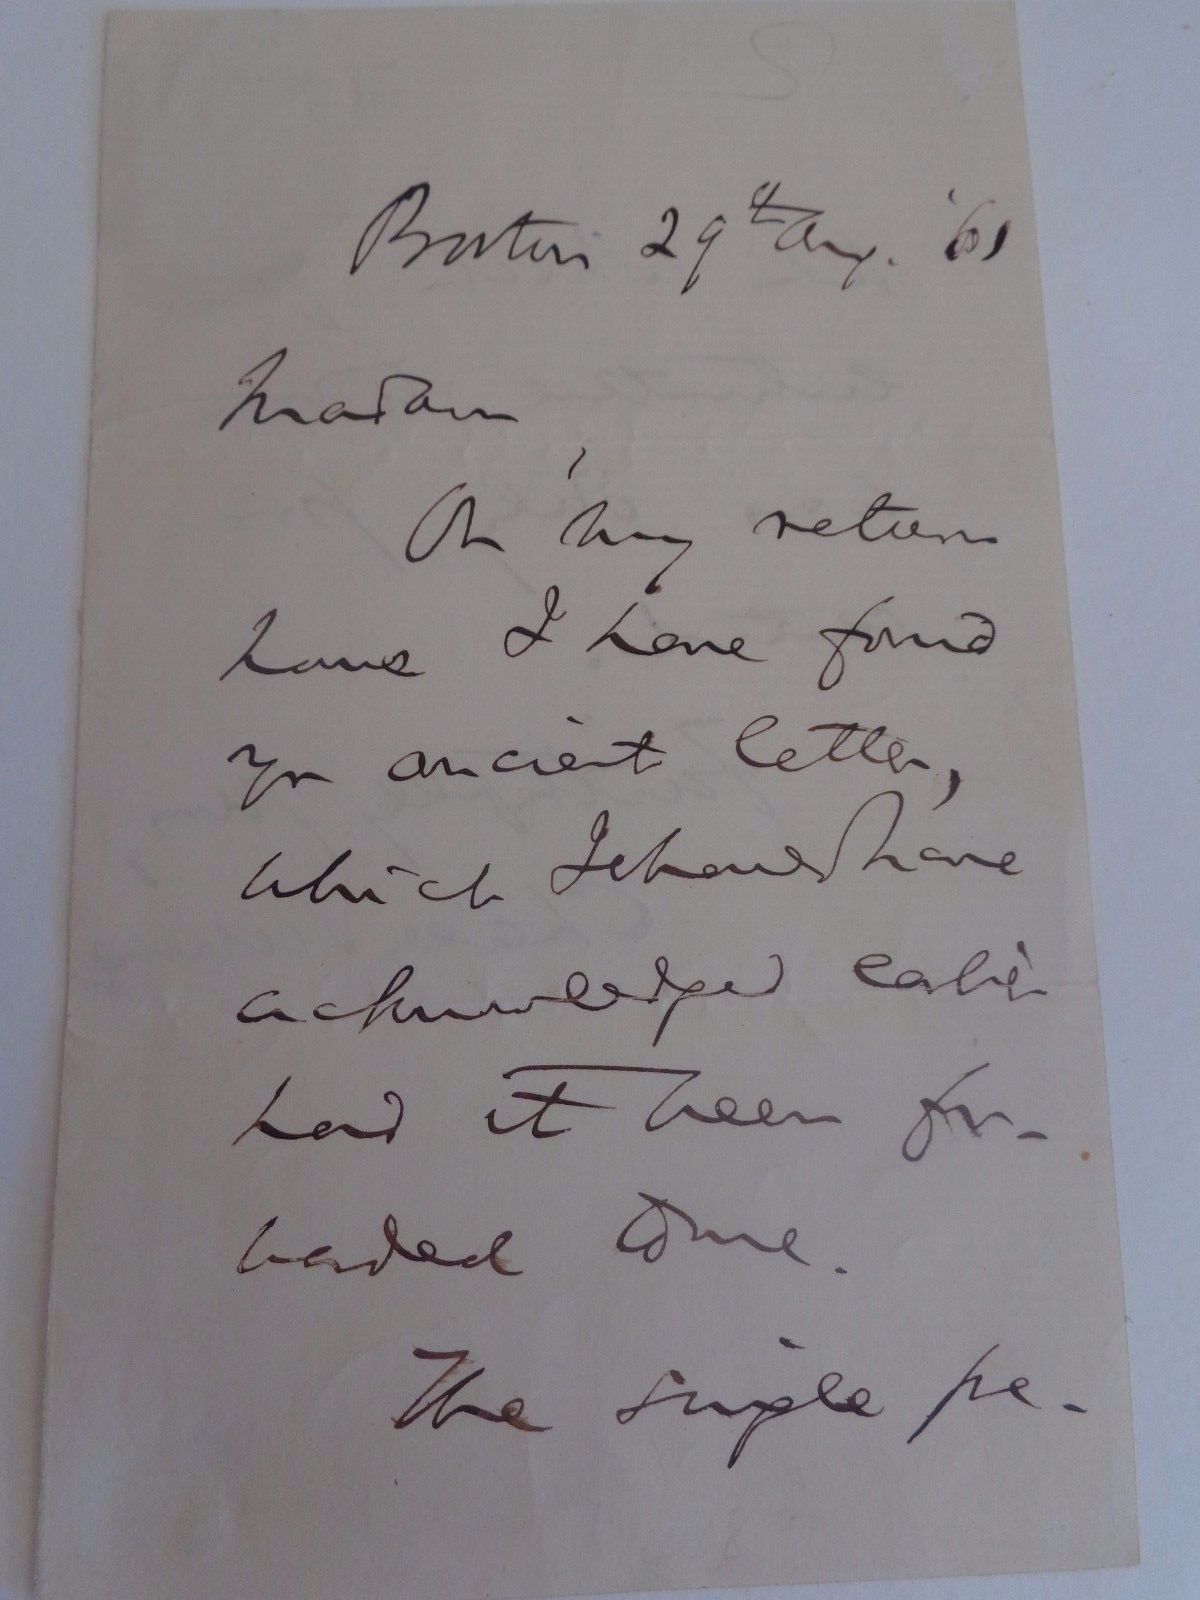 Boston 29th Aug. '61
Madam,
On my return
home I have found
yr ancient letter,
which I should have
acknowledged earlier
had it been for-
warded to me.
The single pe-